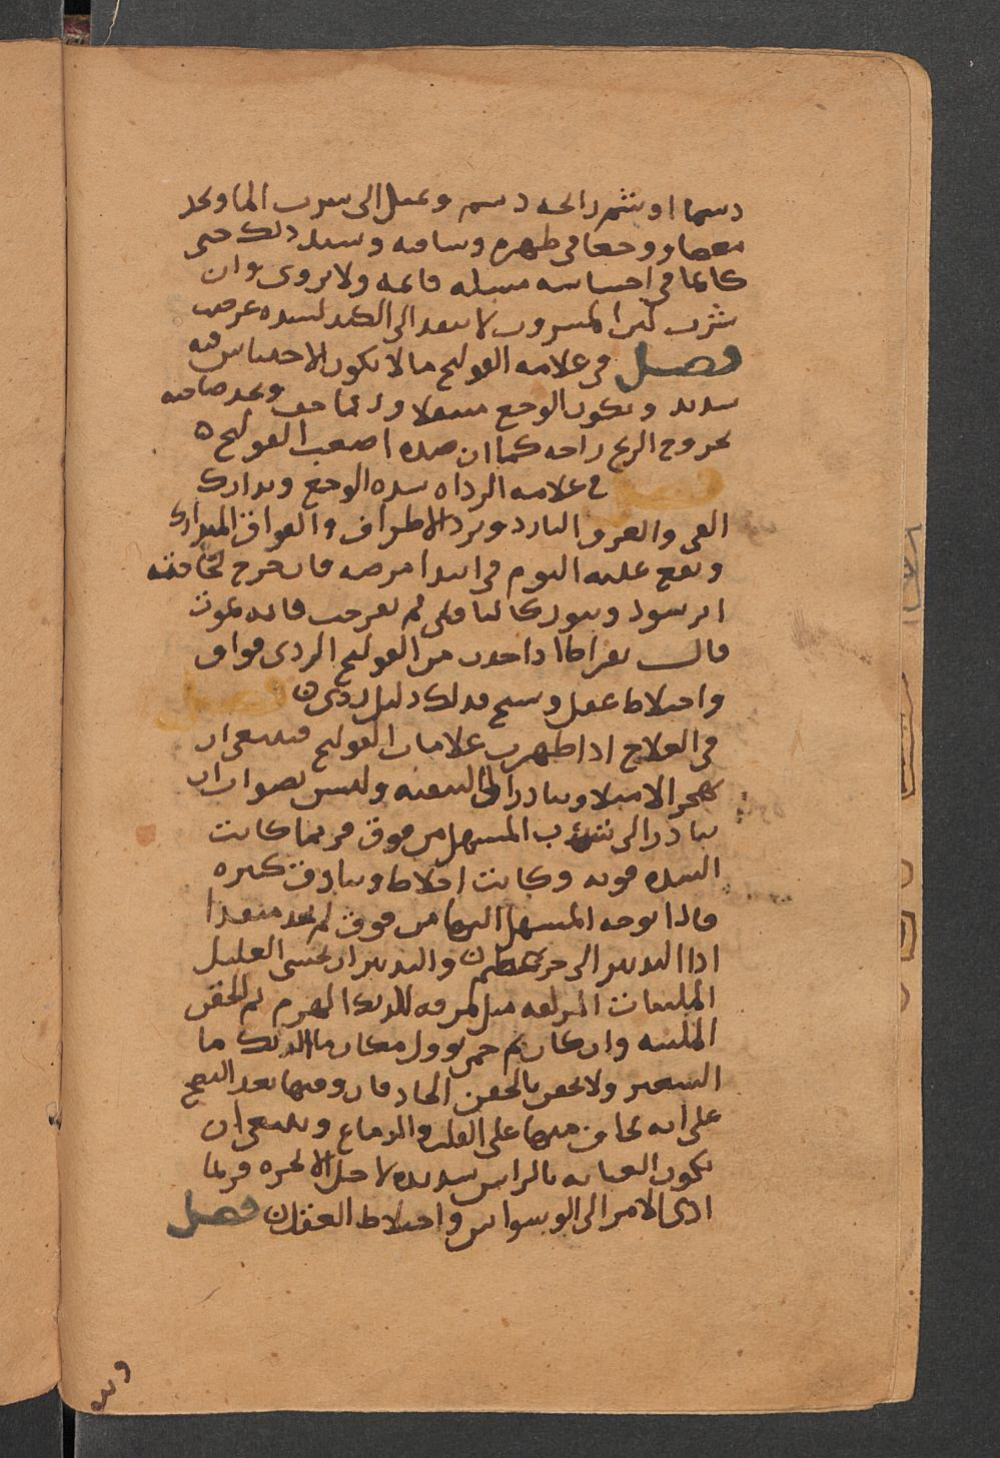 دسما او شم رائحه دسم وىمىل الى سرب الما وىجد
مغصا ووجعا فى ظهره وساقيه وىشتد ذلك حتى
كانما فى احشايه مسله قايمه ولا يروى وان
شرب كثيرا المشروب لا ينفد الى الكبد لسده عرضت
فصل فى علامه القولنج ما لا يكون الاحتباس فيه
شديد ويكون الوجع منتقلا وربما خف وىجد صاحبه
بخروج الريح راحه كما ان ضده اصعب القولنج ه
فصل فى علامه الرداه شده الوجع وتدارك
القى والعرق البارد وبرد الاطراف والفواق المتدارك
ويقع عليه النوم فى ابتدا مرضه فان خرج
اسود وبثور كالباقلى ثم تقرحت فانه يموت
قال بقراط اذا حدث من القولنج الردى فواق
واختلاط عقل وتشنج فدلك دليل ردى ن فصل
فى العلاج اذا ظهرت علامات القولنج فينبغى ان
يهجر الامتلا ويبادر الى التنقيه وليس بصواب ان
يبادر الى شرب المسهل من فوق فربما كانت
السده قويه وكانت اخلاط وبنادق كبيره
فاذا توجه المسهل اليها من فوق لم يجد منفدا
ادا التدبير الى خطر عظيم ن والتدبير ان يحتسى العليل
المليىات المزلقه مثل مرقه الديك الهرم ثم الحقن
الملينه وان كان ثم حمى فبدل مكان ما الديك ما
الشعير ولا يحقن بالحقن الحاده
على انه يخاف منها على القلب والدماغ وينبغى ان
يكون العنايه بالراس شديده لاجل الابخره فربما
ادى الامر الى الوسواس واختلاط العقل ن فصل